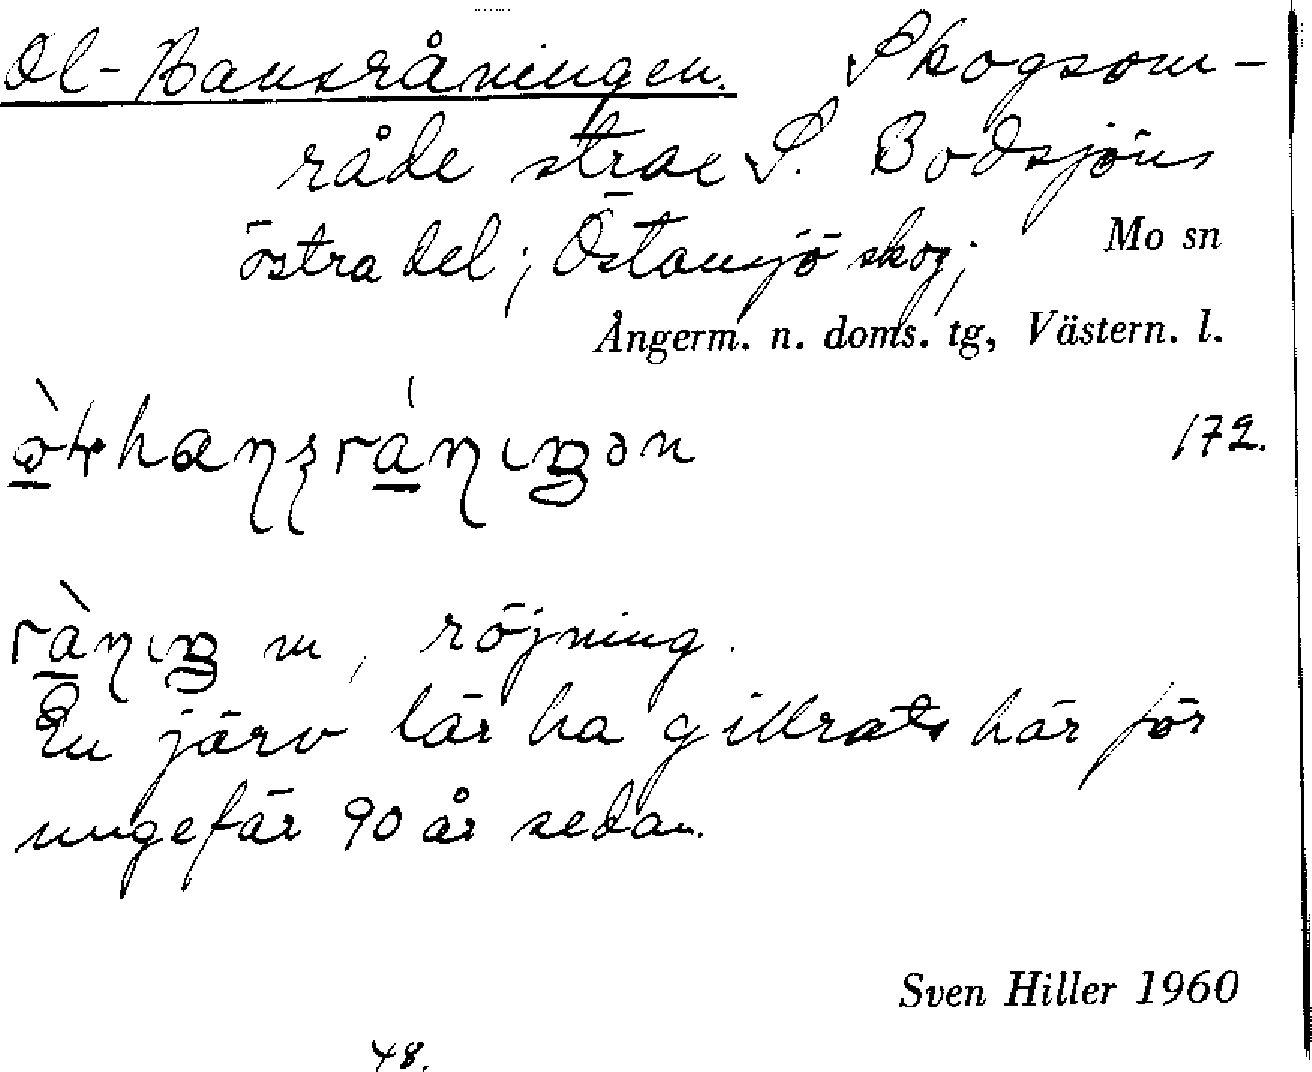 Ol-Hansråningen. Skogsom-
råde strax S. Bodsjöns
östra del; Östansjö skog;
Mo sn
Ångerm. n. doms. tg, Västern. l.
172.
m, röjning.
En järv lär ha gillrats här för
ungefär 90 år sedan.
Sven Hiller 1960
48.